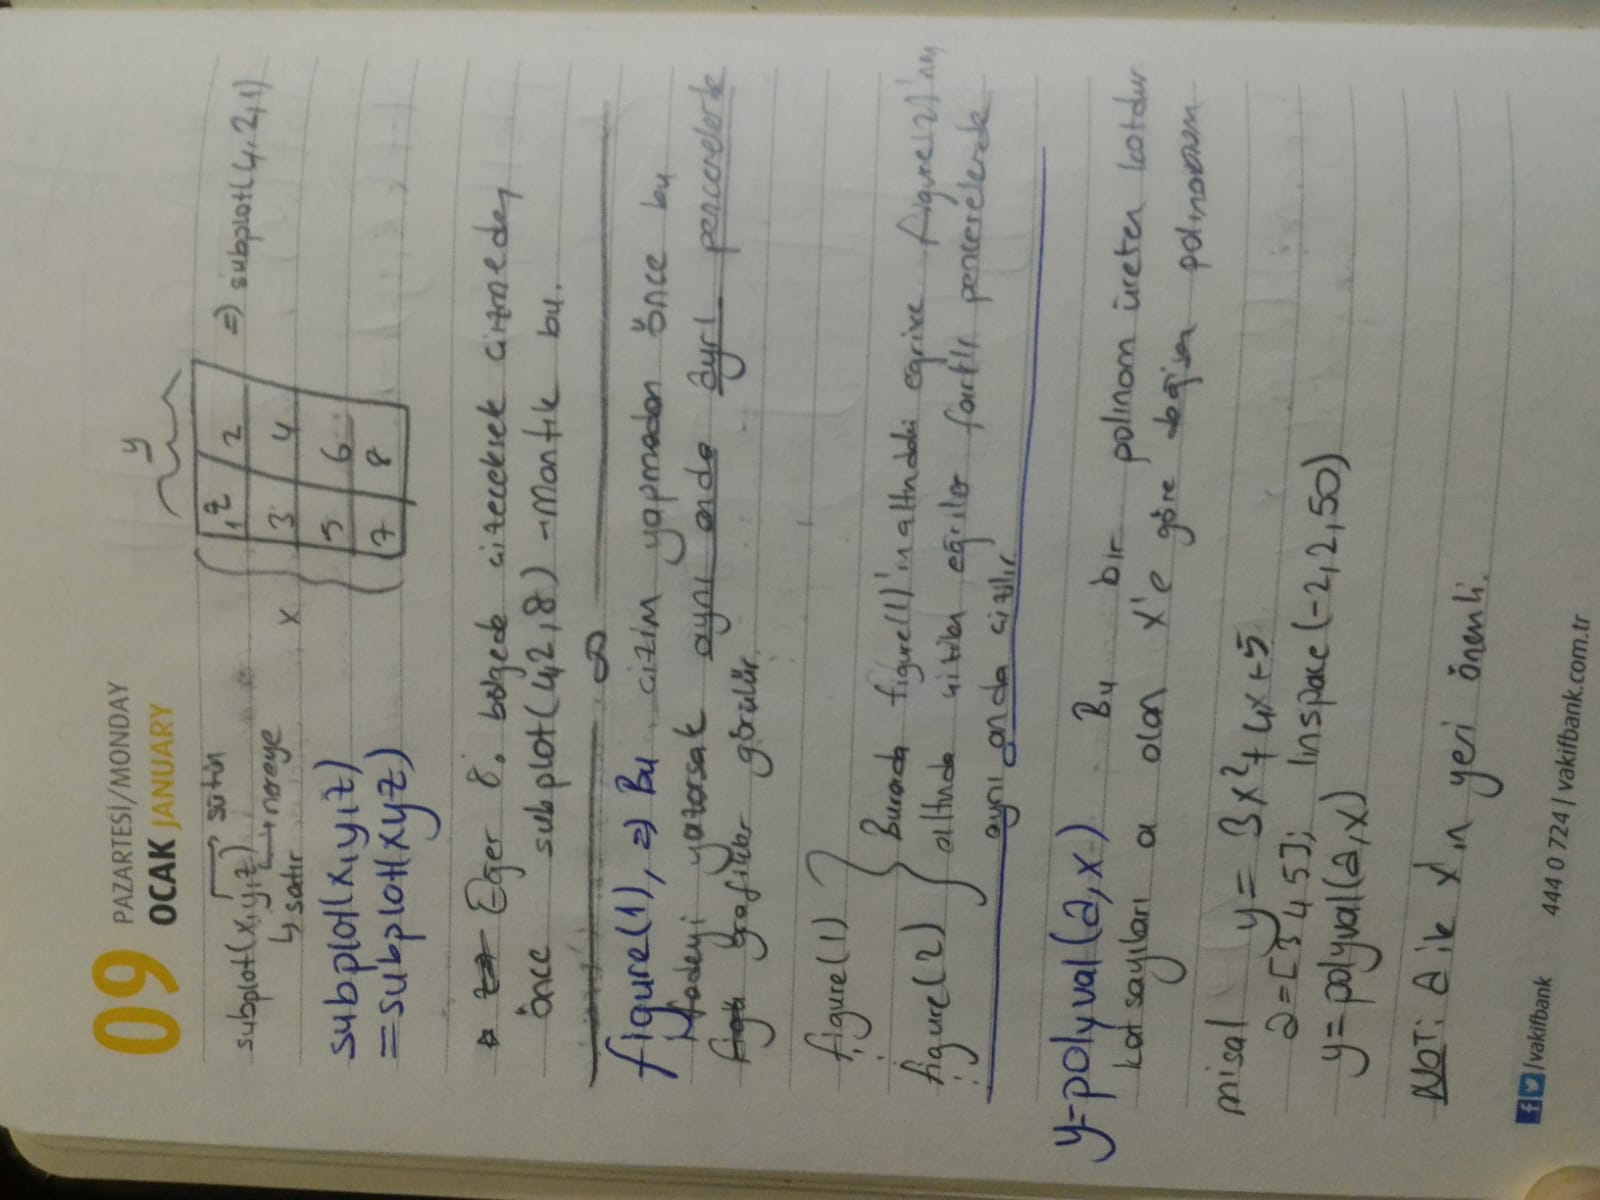 09
PAZARTESİ/MONDAY
OCAK JANUARY
subplot(x,y,z) → sütun
nereye
↳ satır
y
x
1 z 2
3 4
5 6
7 8
=> subplot(4,2,1)
subplot(x,y,z)
=subplot(xyz)
Eğer 8. bölgede çizeceksek çizmeden
önce subplot(4,2,8) → Mantık bu.
figure(1), => Bu çizim yapmadan önce bu
ifadeyi yazarsak aynı anda ayrı pencerelerde
grafikler görülür.
figure(1)
figure(2)
Burada figure(1)'in altındaki eğrive figure(2)'nin
altında çizilen eğriler farklı pencerelerde
aynı anda çizilir
y=polyval(a,x) Bu bir polinom üreten kotdur
kat sayıları a olan x'e göre değişen polinomum
misal y = 3x²+4x+5
a=[3 4 5]; linspace(-2,2,50)
y=polyval(a,x)
NOT: a ile x'in yeri önemli.
/vakifbank 444 0 724 | vakifbank.com.tr